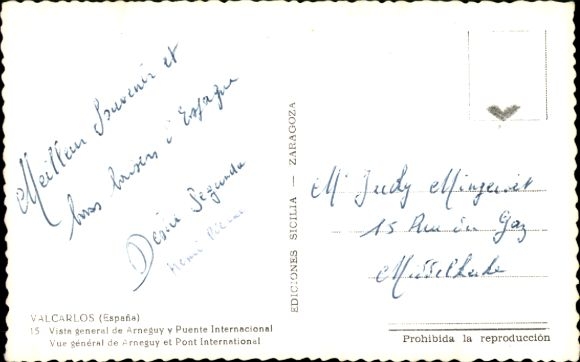 Meilleur Souvenir et
bons baisers d'Espagne
Désiré Segunda
EDICIONES SICILIA — ZARAGOZA
Judy
15 Rue du Gaz
VALCARLOS (España)
15 Vista general de Arneguy y Puente Internacional
Vue général de Arneguy et Pont International
Prohibida la reproducción